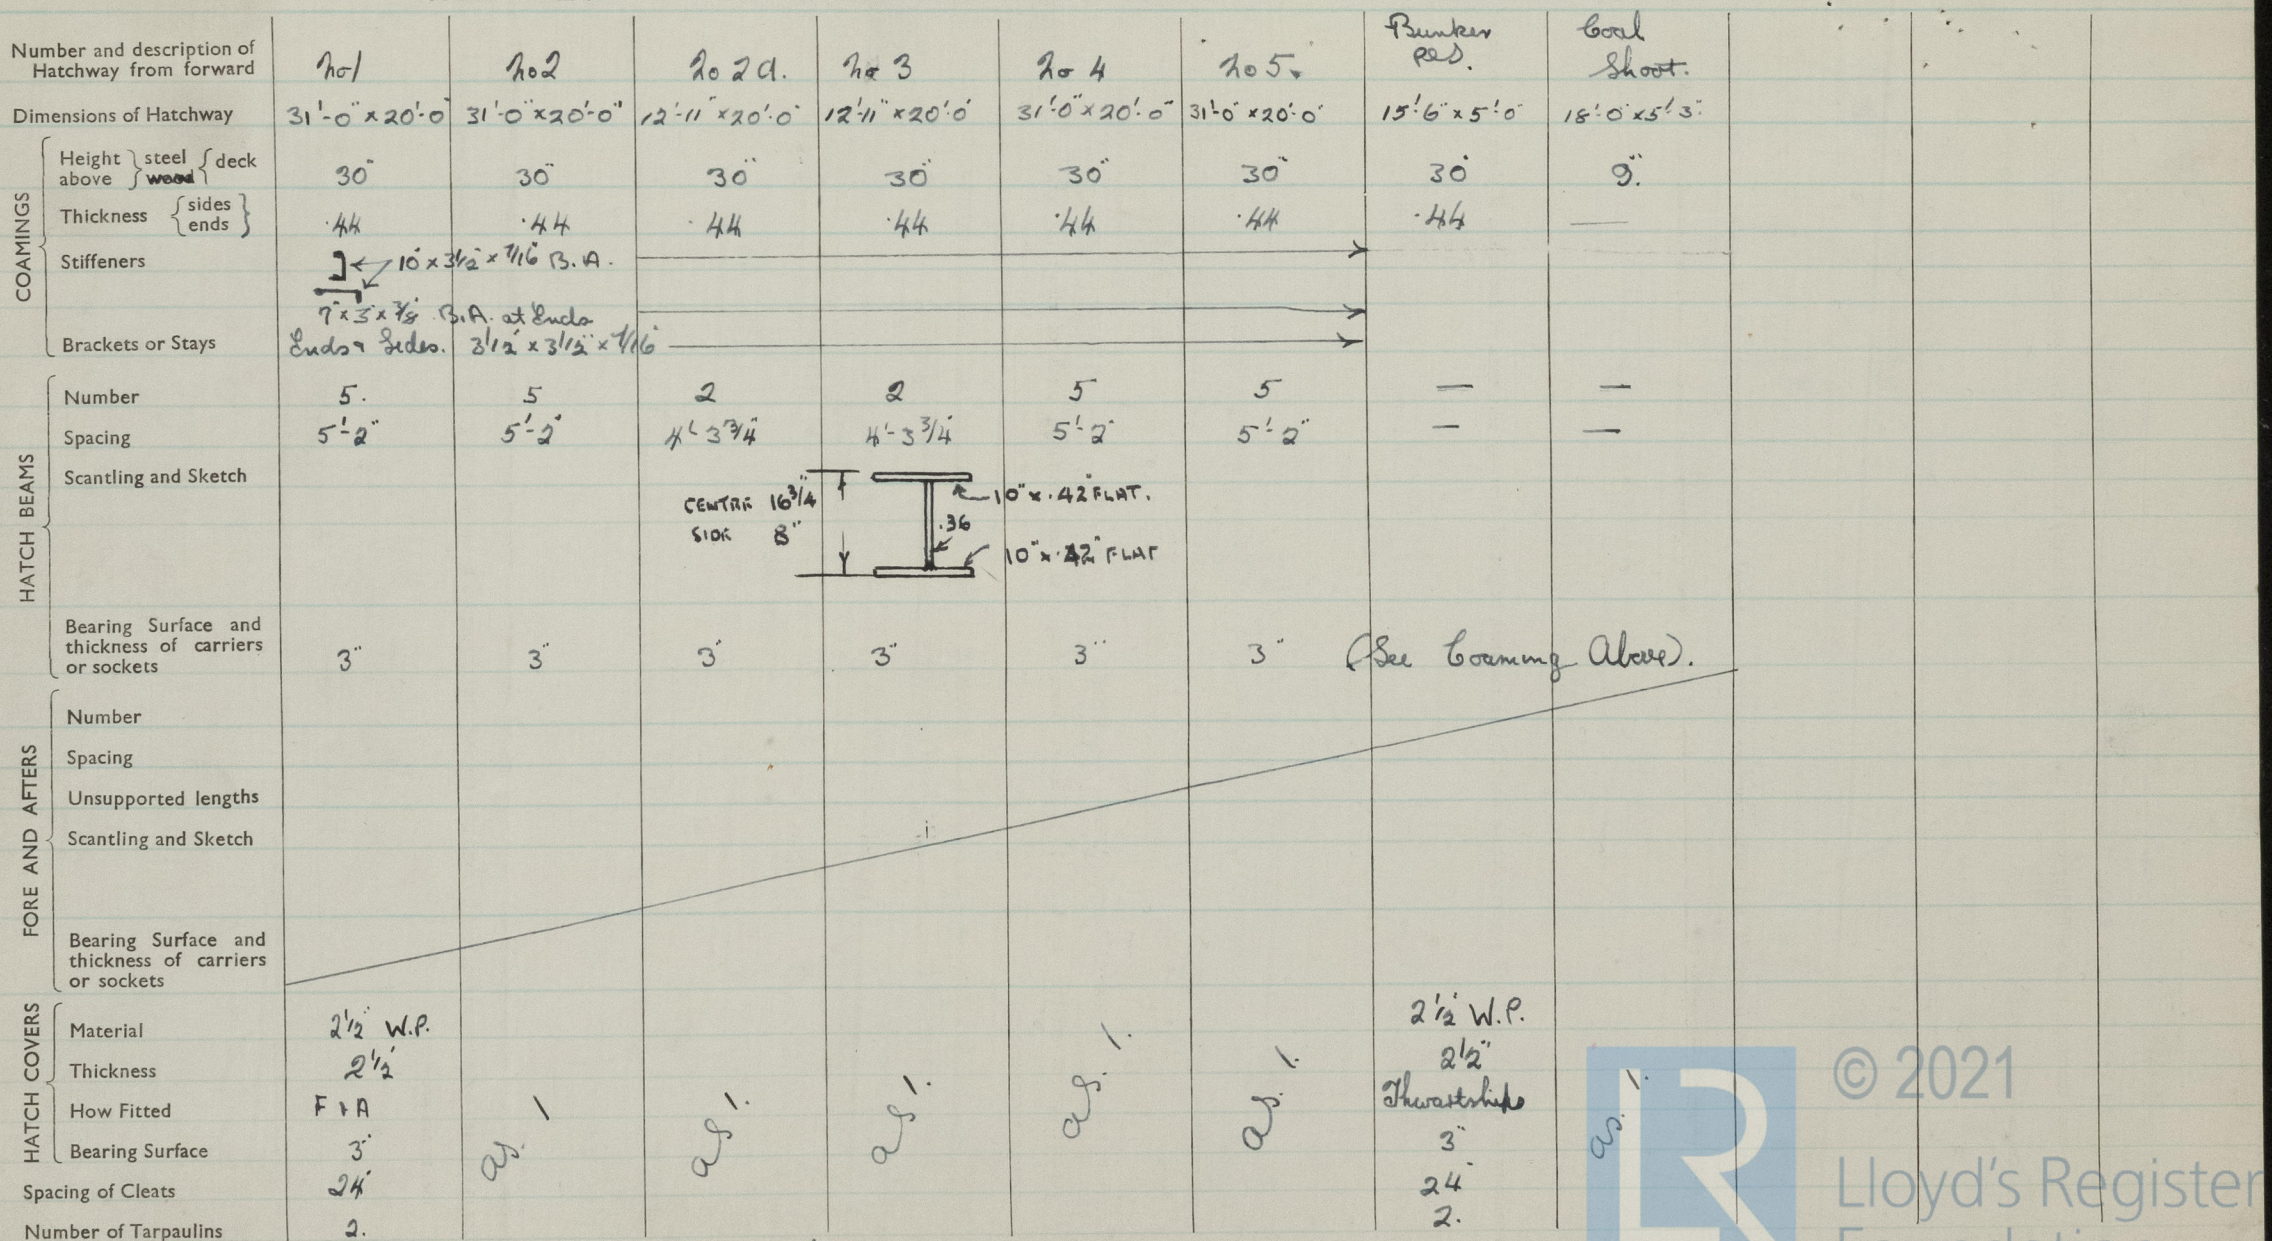 Number and description of Hatchway from forward No 1 No 2 No 2a. No 3 No 4 No 5. Bunker Coal Shoot.
Dimensions of Hatchway 31'-0" x 20'-0 31'-0" x 20'-0" 12'-11" x 20'-0" 12'-11" x 20'-0" 31'-0" x 20'-0" 31'-0" x 20'-0" 15'-6" x 5'-0" 18'-0" x 5'-3"
COAMINGS
Height above steel wood deck 30" 30" 30" 30" 30" 30" 30" 9".
Thickness sides ends .44 .44 .44 .44 .44 .44 .44 —
Stiffeners 10" x 3 1/2" x 7/16" B.A.
7" x 3" x 3/8" B.A. at Ends
Brackets or Stays Ends & Sides. 3 1/2" x 3 1/2" x 7/16"
HATCH BEAMS
Number 5. 5 2 2 5 5 — —
Spacing 5'-2" 5'-2" 4'-3 3/4" 4'-3 3/4" 5'-2" 5'-2" — —
Scantling and Sketch
CENTRE 16 3/4" 10" x .42" FLAT.
SIDE 8" .36
10" x .42" FLAT
Bearing Surface and thickness of carriers or sockets 3" 3" 3" 3" 3" 3" (See Coaming Above).
FORE AND AFTERS
Number
Spacing
Unsupported lengths
Scantling and Sketch
Bearing Surface and thickness of carriers or sockets
HATCH COVERS
Material 2 1/2" W.P. 2 1/2" W.P.
Thickness 2 1/2" 2 1/2"
How Fitted F & A as. 1 as 1. as 1. as. 1. as. 1. Thwartships as. 1.
Bearing Surface 3" 3"
Spacing of Cleats 24" 24"
Number of Tarpaulins 2. 2.
© 2021
Lloyd's Register
Foundation